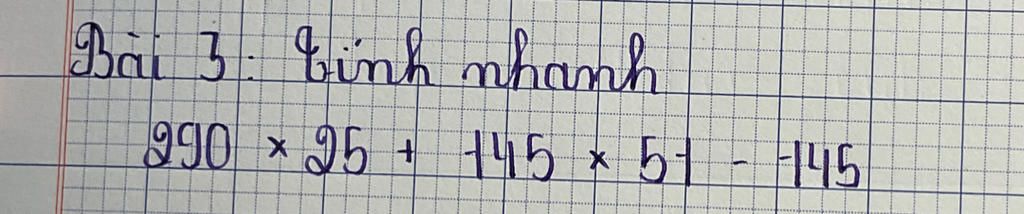 Bài 3: tính nhanh
290 × 25 + 145 × 51 - 145